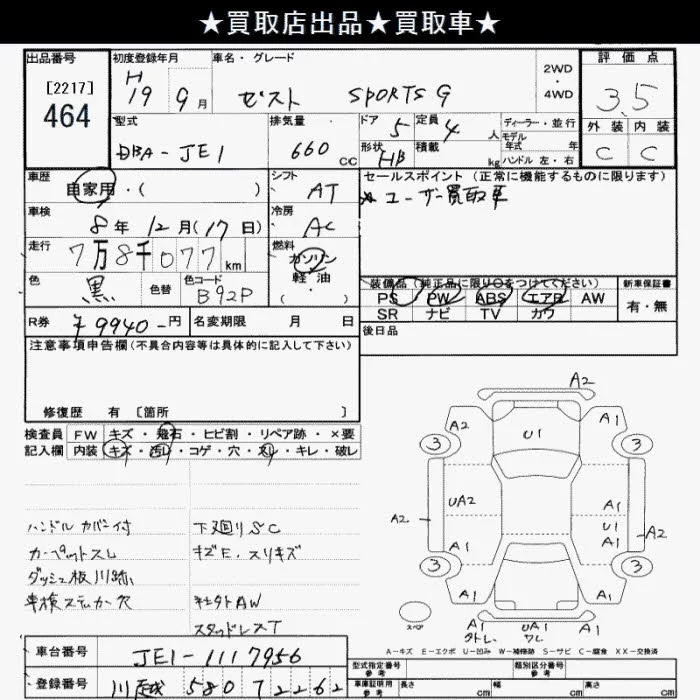 ★買取店出品★買取車★
出品番号
[2217]
464
初度登録年月
H
19 9月
車名・グレード
ゼスト SPORTS G
2WD
・
4WD
評価点
3.5
外装 内装
C C
型式
DBA-JE1
排気量
660 CC
ドア 5
定員 4 人
形状 HB
積載 kg
ディーラー・並行
モデル
年式 年
ハンドル 左・右
車歴
自家用・( )
シフト
AT
セールスポイント (正常に機能するものに限ります)
★ユーザー買取車
車検
8年 12月(17日)
冷房
AC
走行
7万8千077 km
燃料
ガソリン
軽油
・
色
黒
色替
色コード
B92P
装備品 (純正品に限り○をつけてください)
PS PW ABS エアB AW
SR ナビ TV カワ
新車保証書
有・無
R券 ¥9940-円
名変期限 月 日
後日品
注意事項申告欄(不具合内容等は具体的に記入して下さい)
修復歴 有 [箇所 ]
検査員 FW キズ・飛石・ヒビ割・リペア跡・×要
記入欄 内装 キズ・汚レ・コゲ・穴・スレ・キレ・破レ
ハンドルカバー付
カーペットスレ
ダッシュ板
車検ステッカー欠
下廻りSC
キズE、スリキズ
社外AW
スタッドレスT
A2
A2 U1 A1
3 3
UA2 A1
A2 U1 A2
A1 A1
3 3
A1 A1
スペア
UA1
ワレ
A-キズ E-エクボ U-凹み W-補修跡 S-サビ C-腐食 XX-交換済
車台番号 JE1-1117956
登録番号 川越 580 7 2262
型式指定番号
参考
類別区分番号
車庫証明用
参考
長さ cm 幅 cm 高さ cm